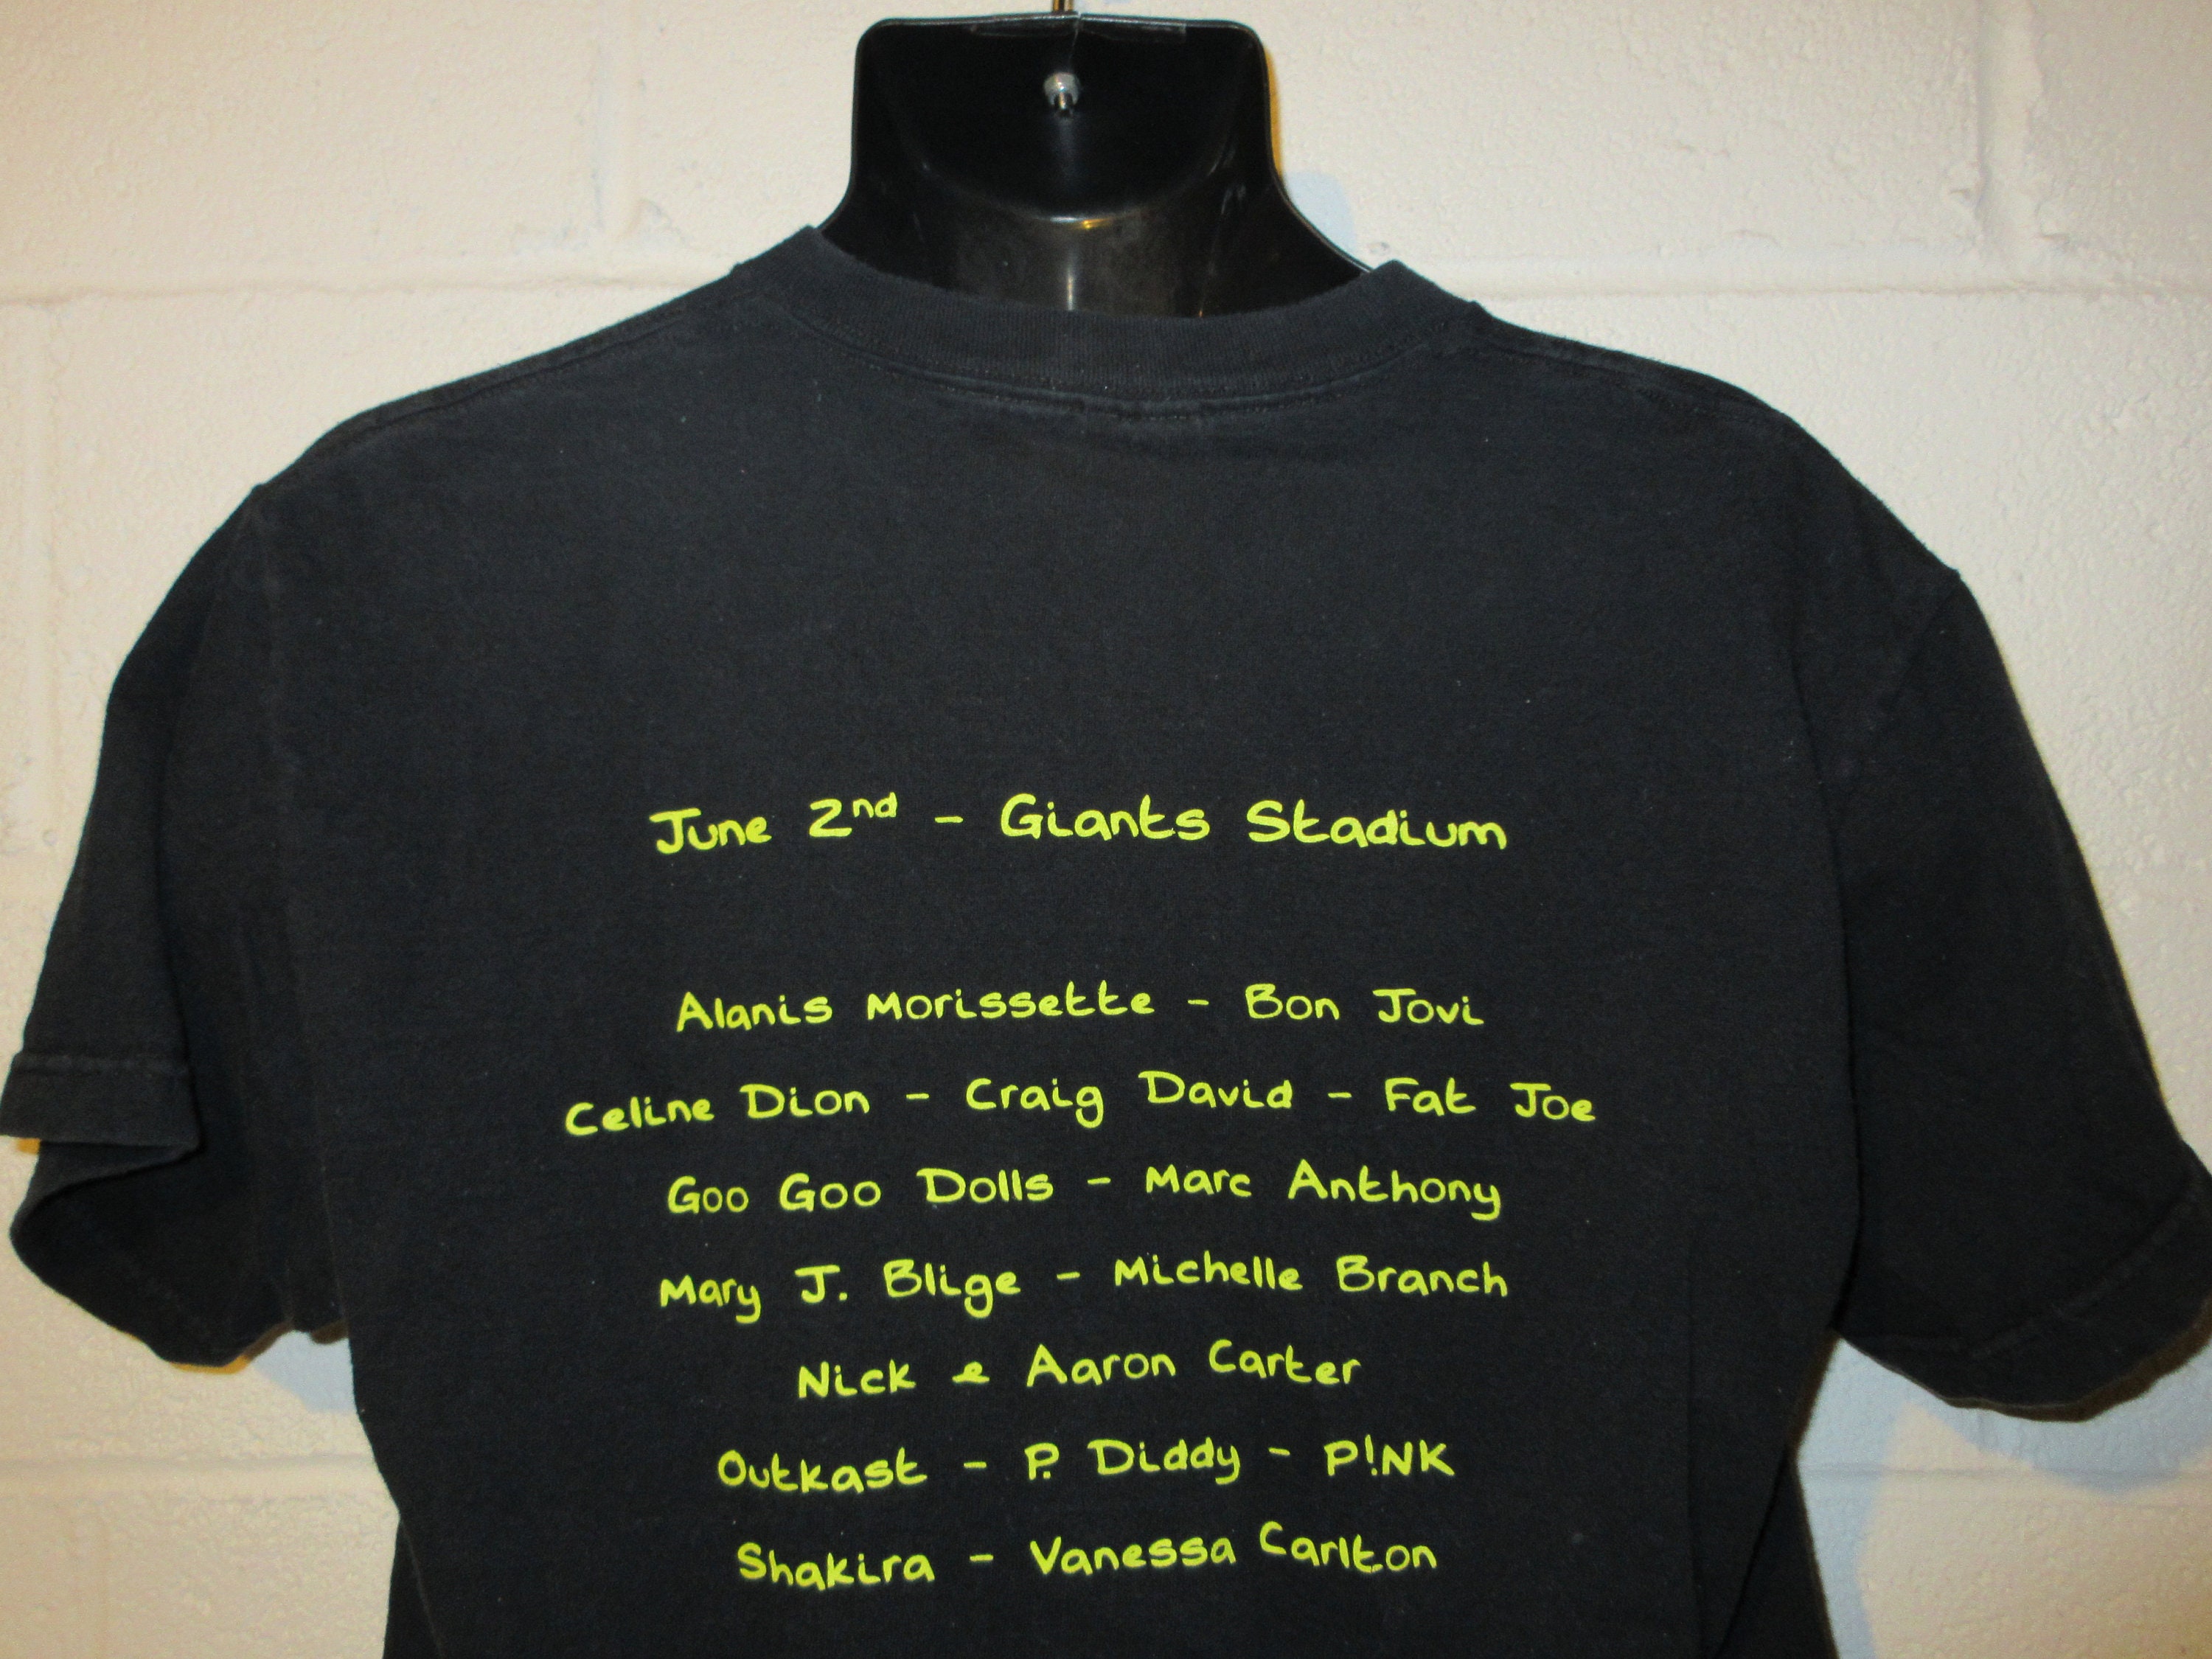 June 2nd - Giants Stadium
Alanis Morissette - Bon Jovi
Celine Dion - Craig David - Fat Joe
Goo Goo Dolls - Marc Anthony
Mary J. Blige - Michelle Branch
Nick & Aaron Carter
Outkast - P. Diddy - P!NK
Shakira - Vanessa Carlton